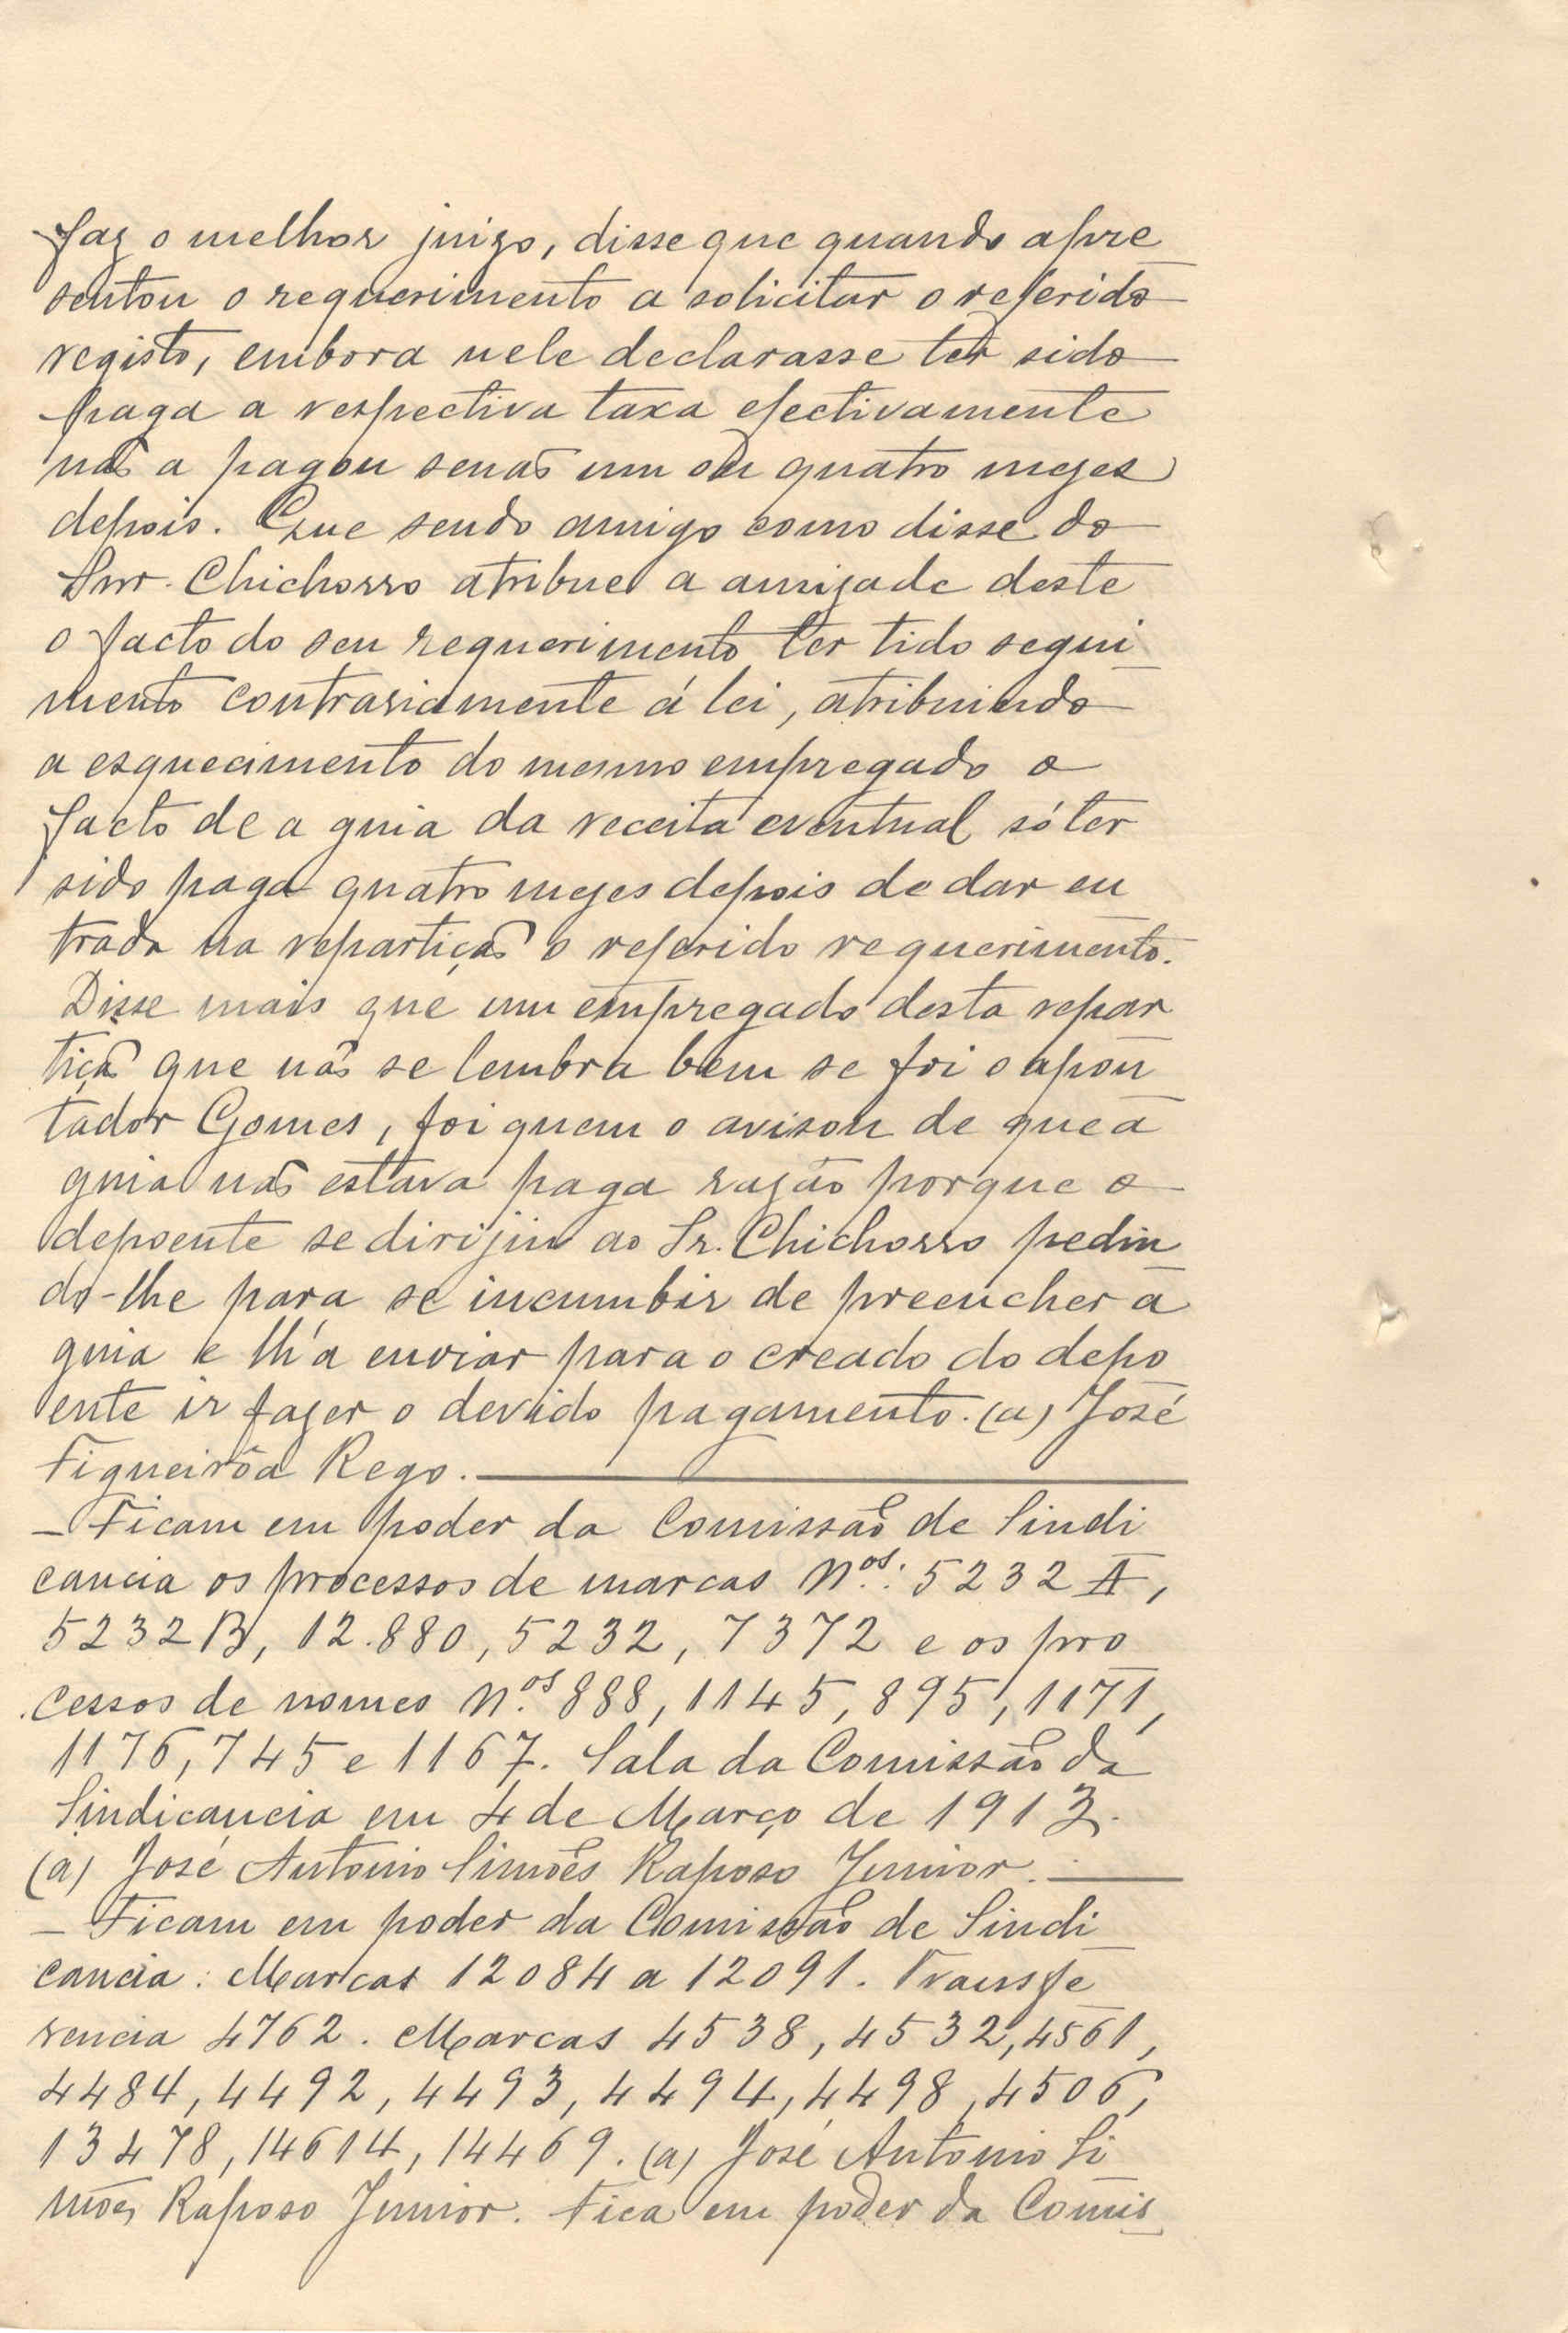 faz o melhor juizo, disse que quando apre
sentou o requerimento a solicitar o referido
registo, embora nele declarasse ter sido
paga a respectiva taxa efectivamente
não a pagou senão um ou quatro mezes
depois. Que sendo amigo como disse do
Snr. Chichorro atribue a amizade deste
o facto do seu requerimento ter tido segui
mento contrariamente á lei, atribuindo
a esquecimento do mesmo empregado o
facto de a guia da receita eventual só ter
sido paga quatro mezes depois de dar en
trada na repartição o referido requerimento.
Disse mais que um empregado desta repar
tição que não se lembra bem se foi o apon
tador Gomes, foi quem o avisou de que a
guia não estava paga razão porque o
depoente se dirijiu ao Sr. Chichorro pedin
do-lhe para se incumbir de preencher a
guia e lh'a enviar para o creado do depo
ente ir fazer o devido pagamento. (a) José
Figueirôa Rego.
— Ficam em poder da Comissão de Sindi
cancia os processos de marcas N.os: 5232 A,
5232 B, 12.880, 5232, 7372 e os pro
cessos de nomes N.os 888, 1145, 895, 1171,
1176, 745 e 1167. Sala da Comissão da
Sindicancia em 4 de Março de 1913.
(a) José Antonio Simões Raposo Junior.
— Ficam em poder da Comissão de Sindi
cancia: Marcas 12084 a 12091. Transfe
rencia 4762. Marcas 4538, 4532, 4561,
4484, 4492, 4493, 4494, 4498, 4506,
13478, 14614, 14469. (a) José Antonio Si
mões Raposo Junior. Fica em poder da Comis